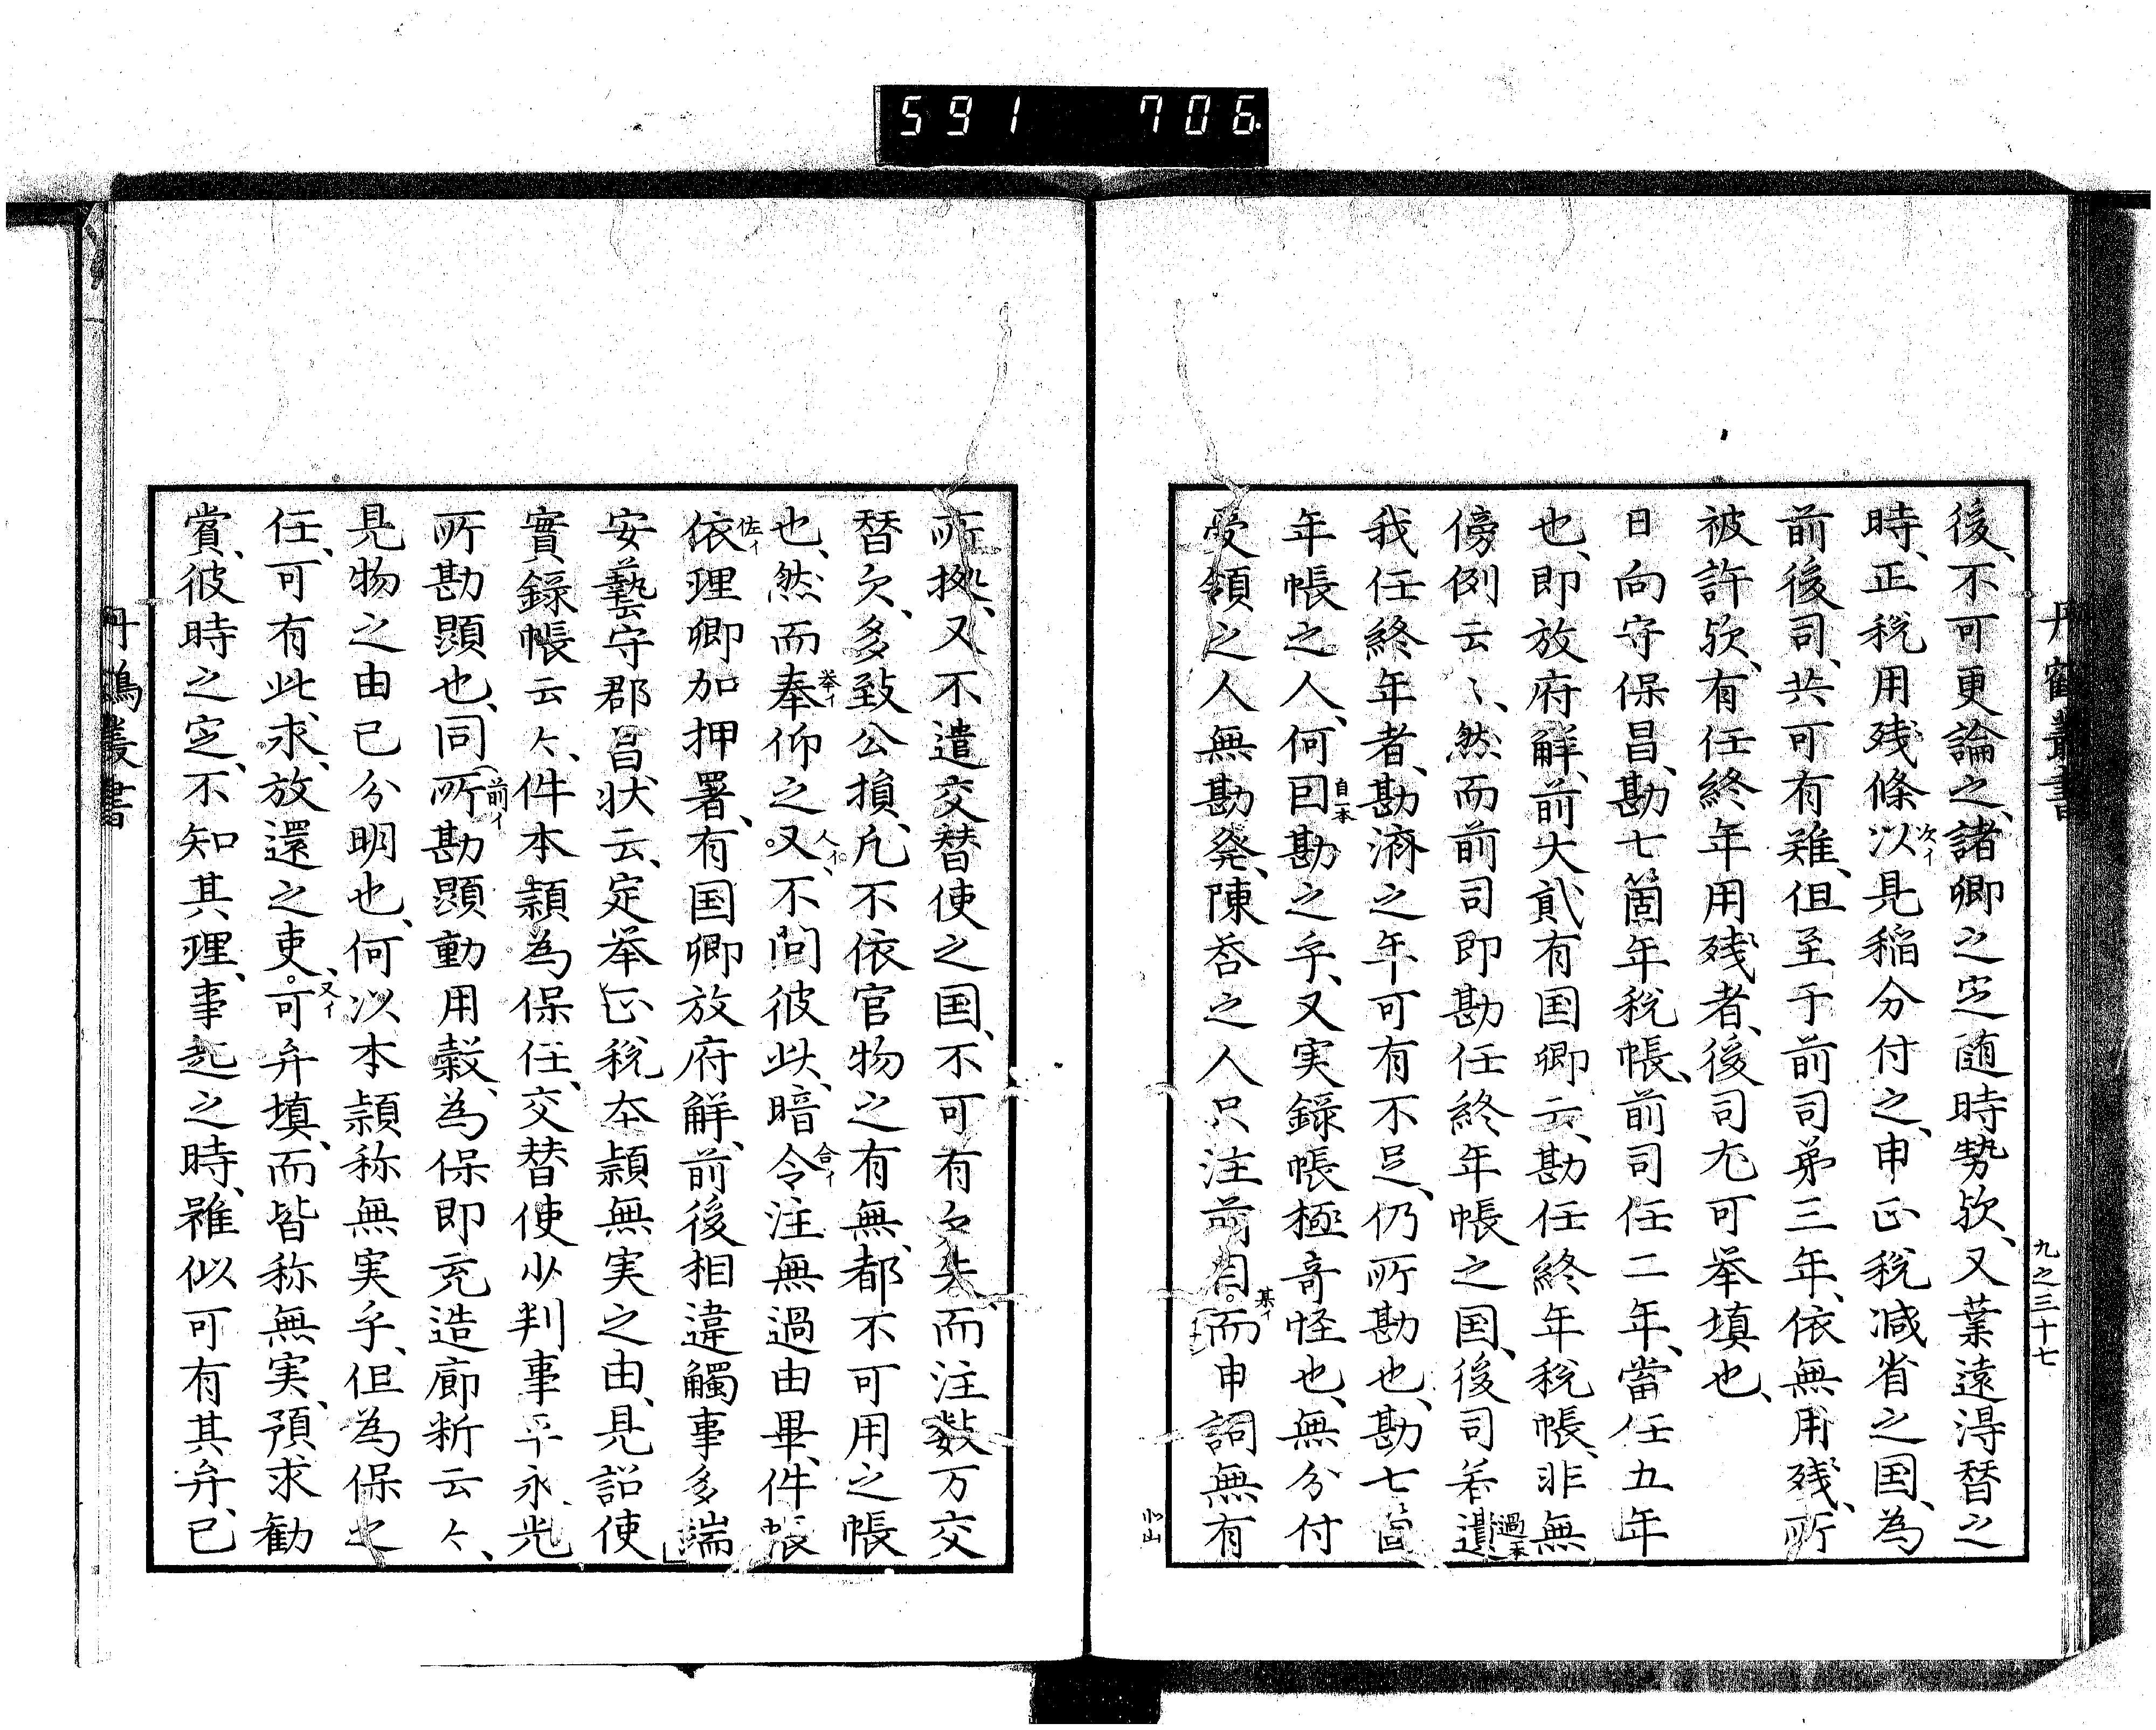 591 706
丹鶴叢書
九之三十七
後、不可更論之、諸卿之定随時勢欤、又葉遠得替之
時、正税用残條以次イ見稲分付之、申正税減省之国、為
前後司、共可有難、但至于前司第三年、依無用残、所
被許欤、有任終年用残者、後司尤可举填也、
日向守保昌、勘七箇年税帳、前司任二年、當任五年
也、即放府解、前大貳有国卿云、勘任終年税帳、非無
傍例云〻、然而前司即勘任終年帳之国、後司若過一本遺
我任終年者、勘済之年可有不足、仍所勘也、勘七箇
年帳之人、何囙自一本勘之乎、又実録帳極奇怪也、無分付
受領之人無勘発、陳荅之人只注前司某イ而申詞無有
所拠、又不遣交替使之国、不可有欠失、而注数万交
替欠、多致公損、凡不依官物之有無、都不可用之帳
也、然而奉挙イ仰之。又人イ、不問彼此、暗令合イ注無過由畢、件帳
依佐イ理卿加押署、有国卿放府解、前後相違觸事多端
安藝守郡昌状云、定举正税本頴無実之由、見詔使
實録帳云々、件本頴為保任、交替使少判事平永光
所勘顕也、同所前イ勘顕動用穀、為保即充造廊料云々、
見物之由已分明也、何以本頴称無実乎、但為保之
任、可有此求、放還之吏。、又イ可弁填、而皆称無実、預求勧
賞、彼時之定、不知其理、事起之時、雖似可有其弁、已
丹鶴叢書